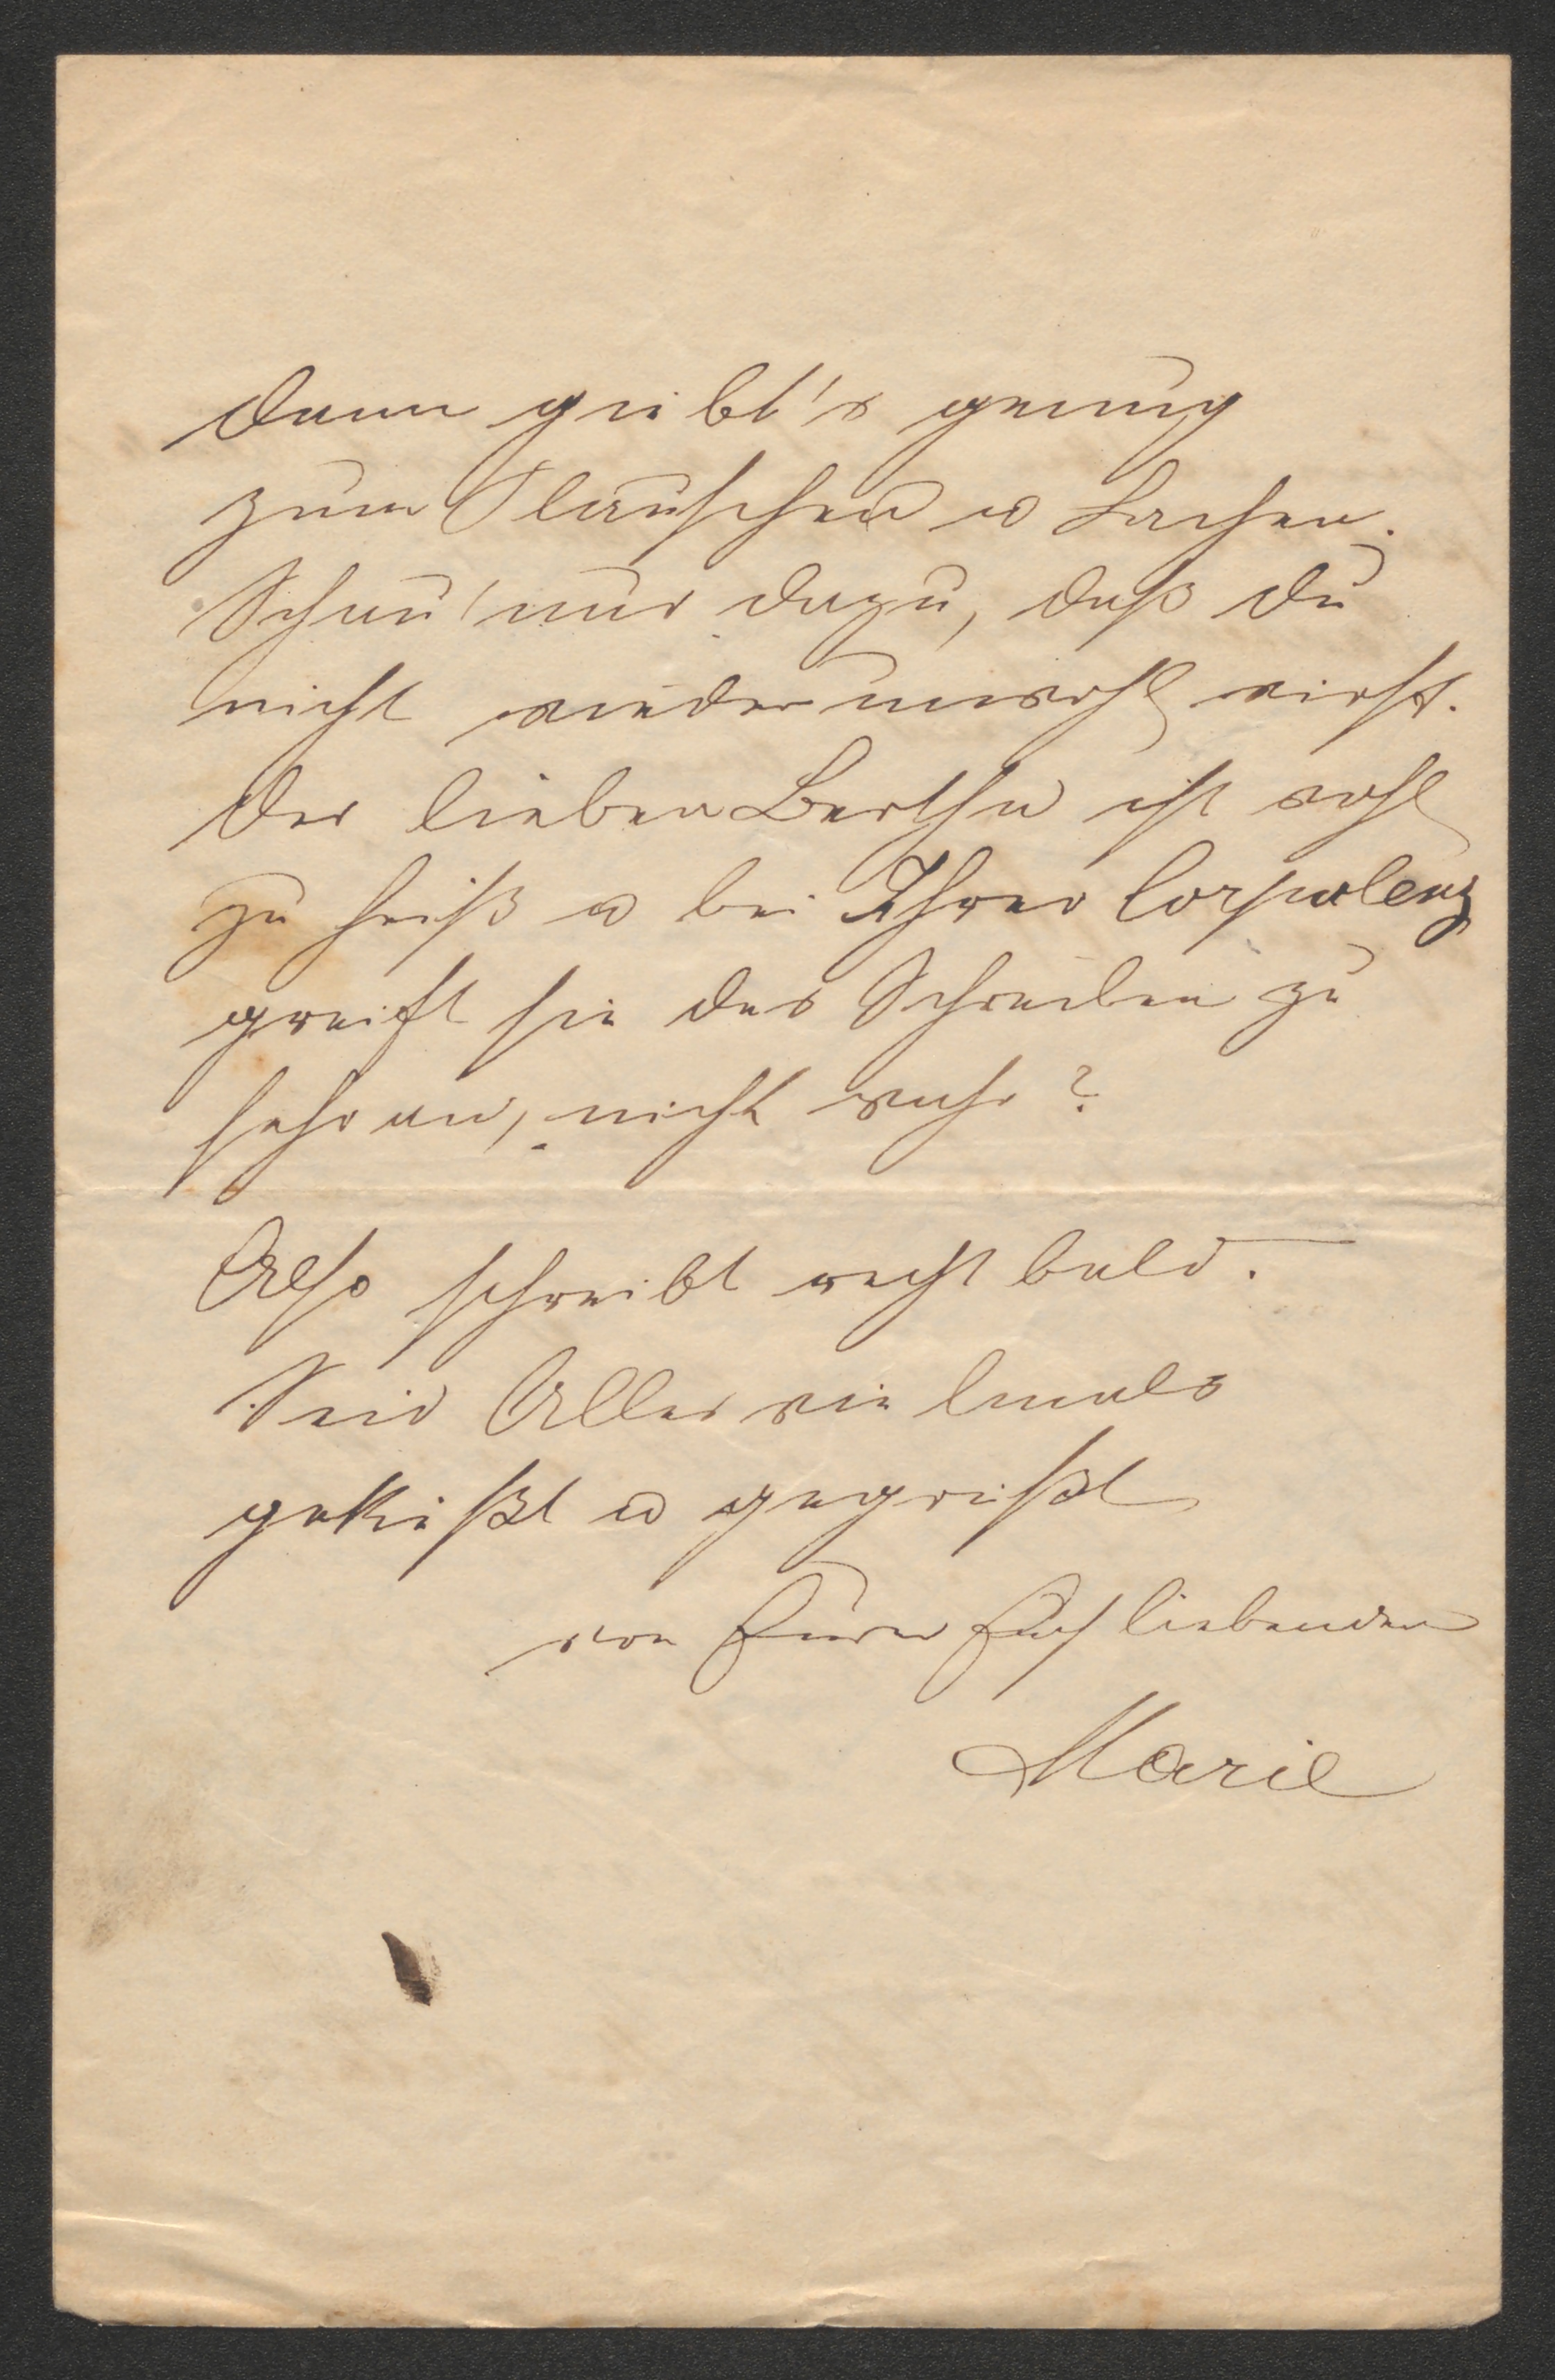 dann giebt's genug
zum Plauschen u Lachen.
Schau' nur dazu, daß du
nicht wieder unwohl wirst.
Der lieben Bertha ist wohl
zu heiß u bei Ihrer Corpulenz
greift sie das Schreiben zu
sehr an, nicht wahr?
Also schreibt recht bald.
Seid Alle vielmals
geküßt u gegrüßt
von Eurer Euch liebenden
Marie